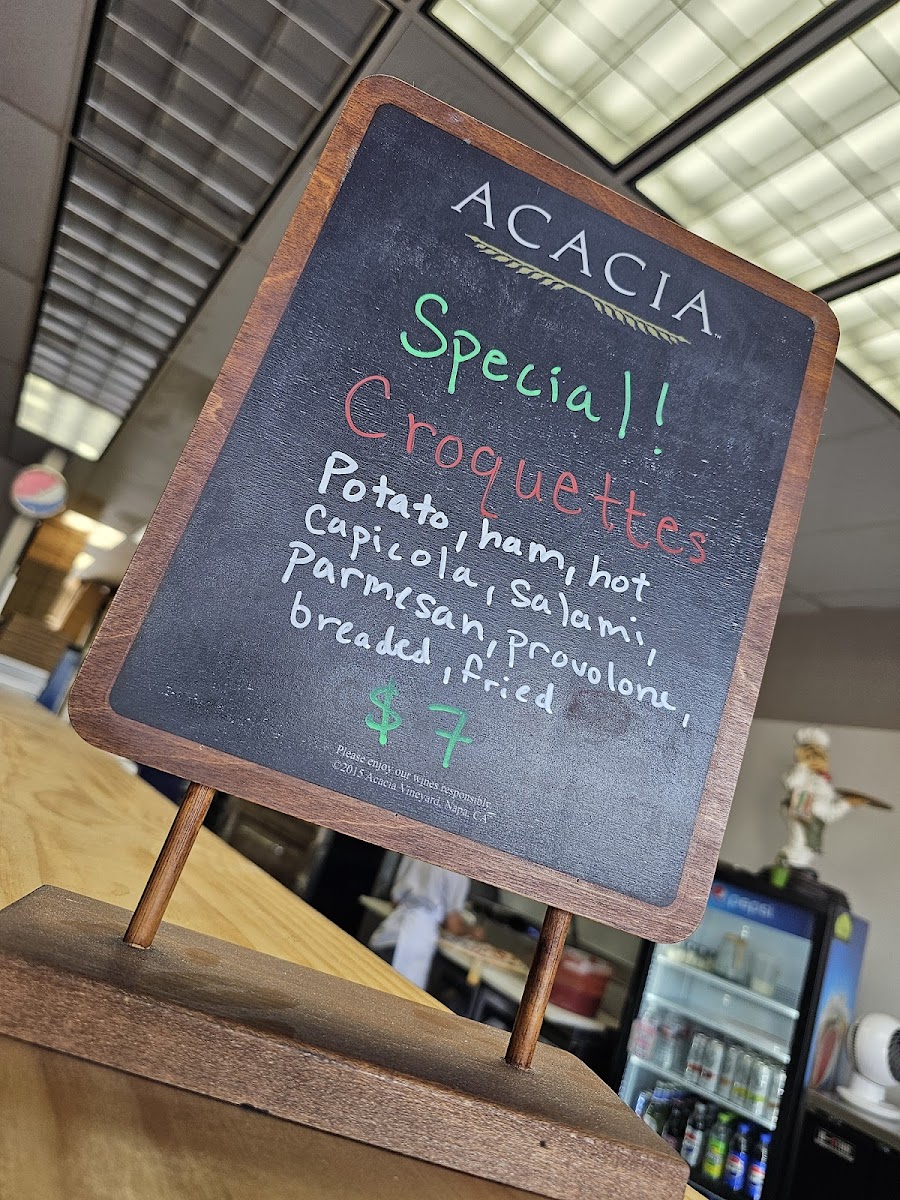 ACACIA™
Special!
Croquettes
Potato, ham, hot
capicola, salami,
Parmesan, provolone,
breaded, fried
$7
Please enjoy our wines responsibly.
©2015 Acacia Vineyard, Napa, CA
pepsi